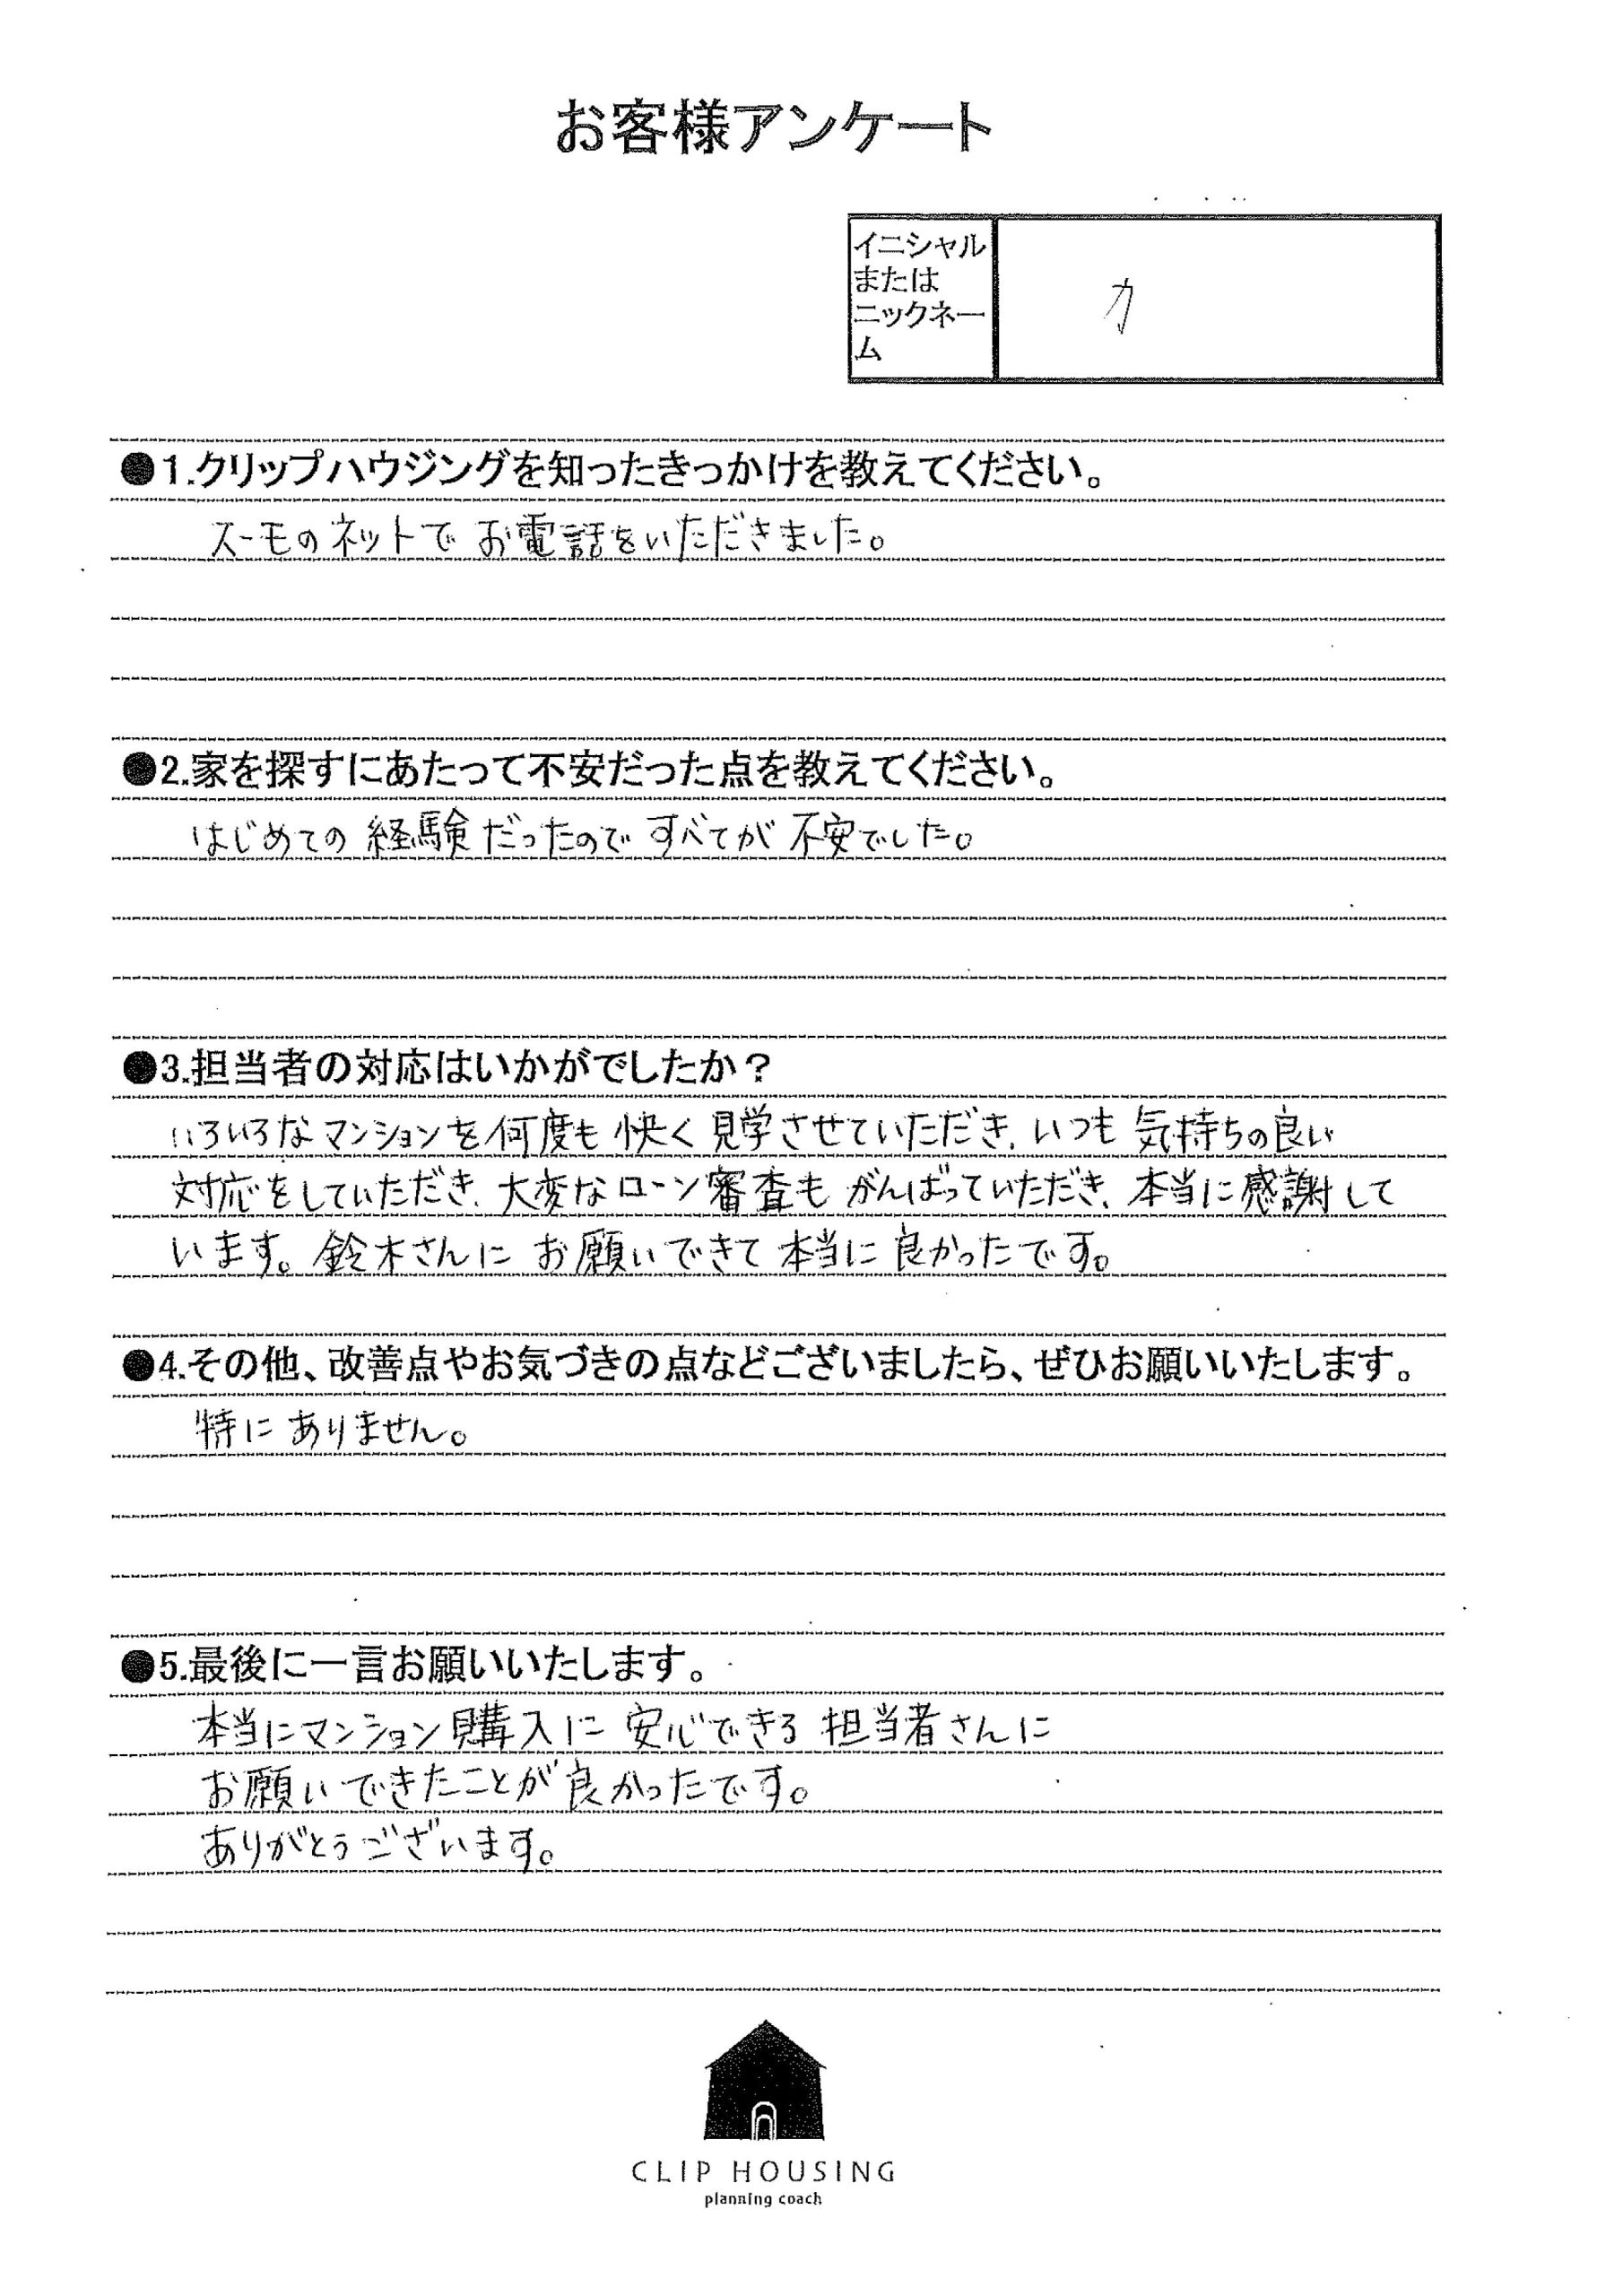 お客様アンケート
イニシャル
または
ニックネー
ム
カ
●1.クリップハウジングを知ったきっかけを教えてください。
スーモのネットでお電話をいただきました。
●2.家を探すにあたって不安だった点を教えてください。
はじめての経験だったのですべてが不安でした。
●3.担当者の対応はいかがでしたか？
いろいろなマンションを何度も快く見学させていただき、いつも気持ちの良い
対応をしていただき、大変なローン審査もがんばっていただき、本当に感謝して
います。鈴木さんにお願いできて本当に良かったです。
●4.その他、改善点やお気づきの点などございましたら、ぜひお願いいたします。
特にありません。
●5.最後に一言お願いいたします。
本当にマンション購入に安心できる担当者さんに
お願いできたことが良かったです。
ありがとうございます。
CLIP HOUSING
planning coach